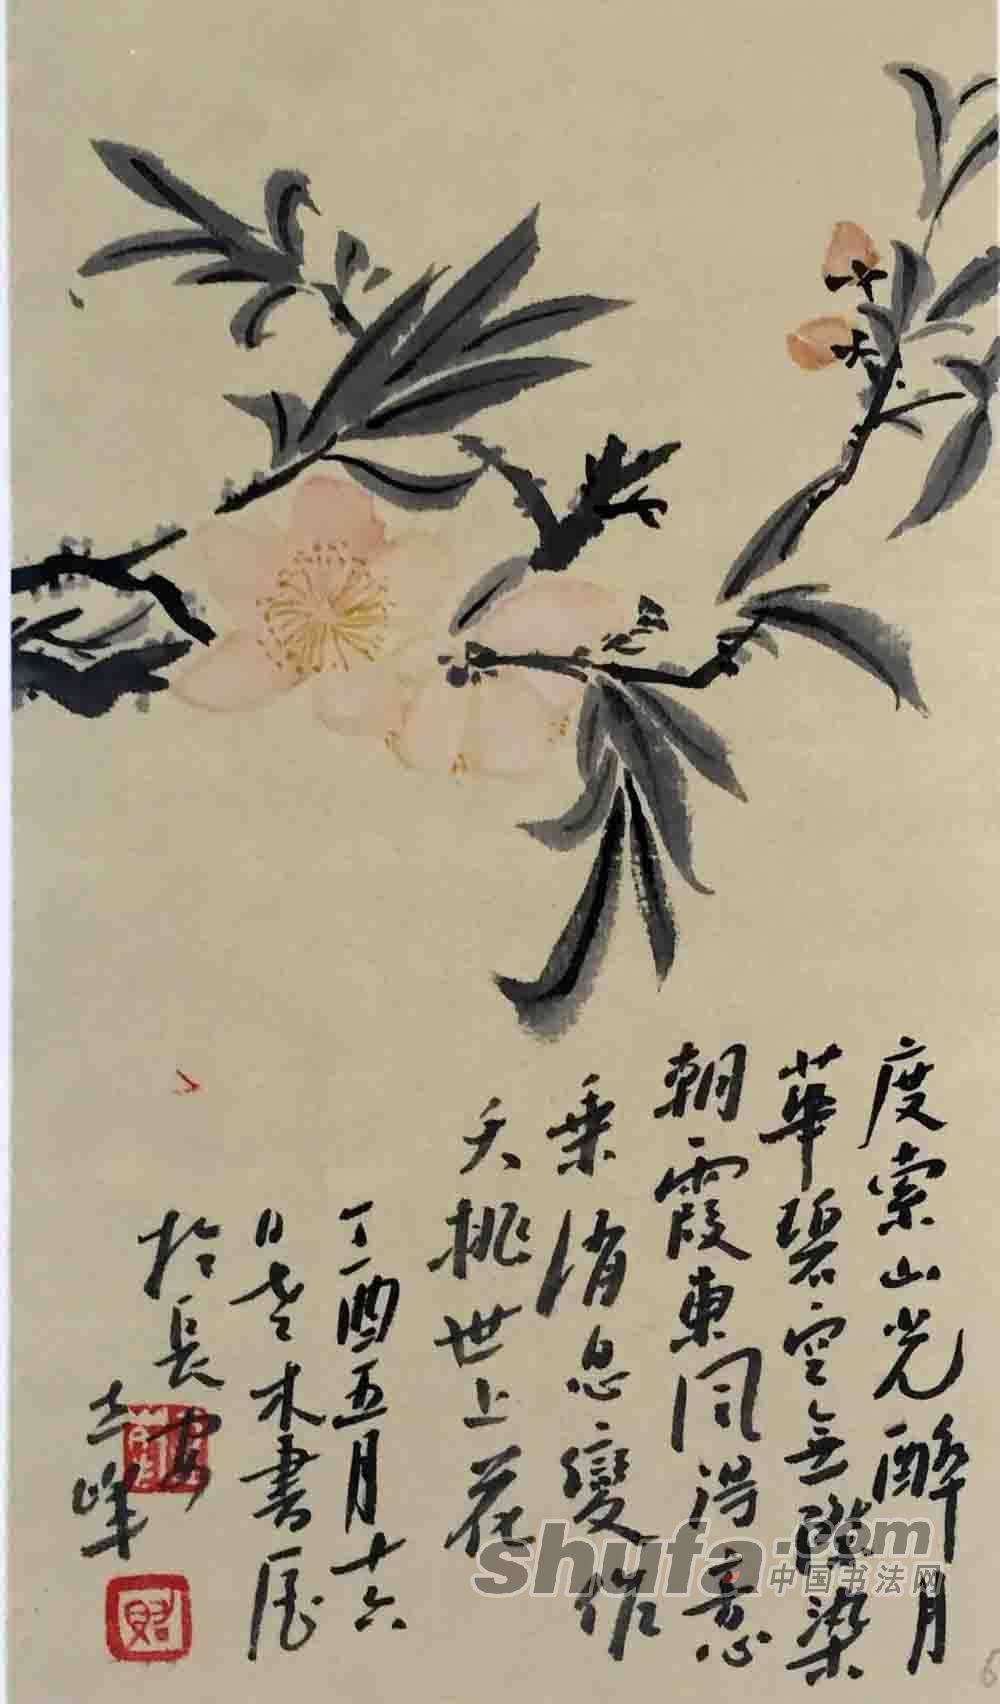 度索山光醉月
華碧空無際染
朝霞東風得意
乗消息變作
夭桃世上花
丁酉五月十六
日老木書屋
於長安
士峰
shufa.com
中国书法网